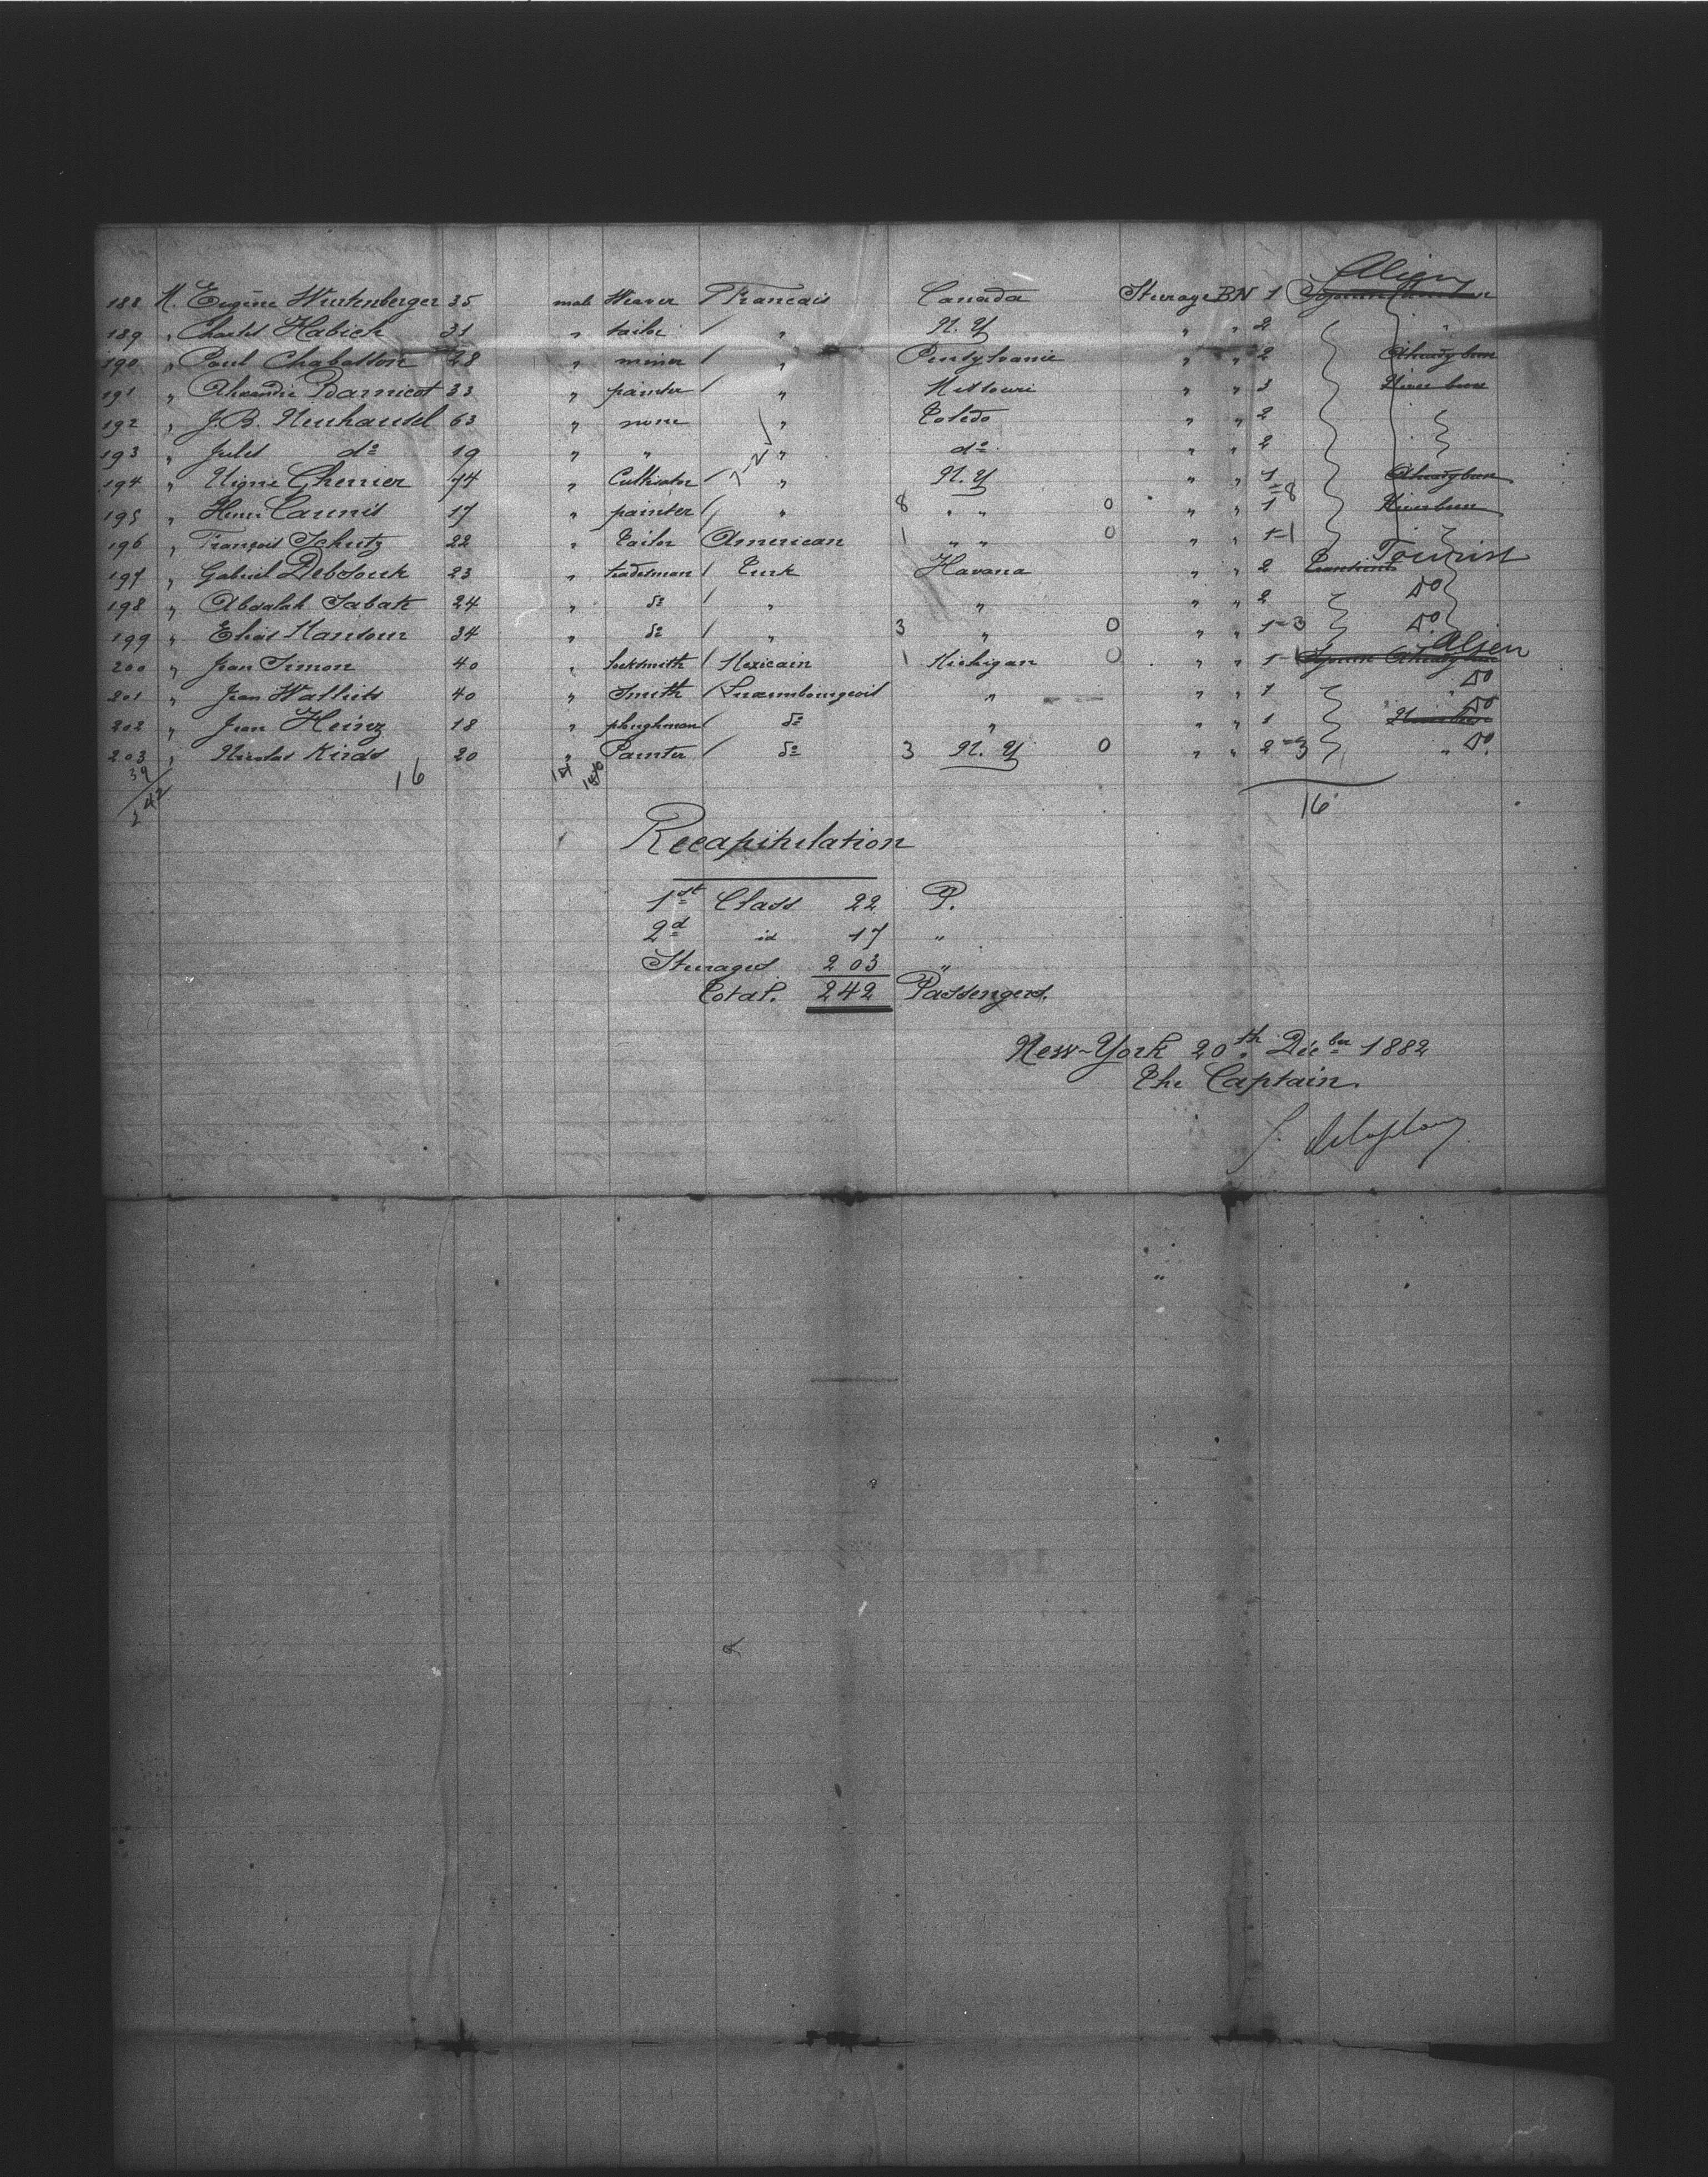 Alien
188 M. Eugène Wurtenberger 35 male Weaver / Francais Canada Steerage BN 1
189 " Charles Habich 31 " tailor / " N. Y " " 2 "
190 " Paul Chabasson 28 " miner / " Pensylvanie " " 2 Already been
191 " Alexandre Barnicot 33 " painter / " Missouri " " 3 Never been
192 " J. B. Neuhausel 63 " none " Toledo " " 2
193 " Jules do 19 " " " do " " 2
194 " Chenier 44 " Cultivator / " N. Y " " 1 Already been
195 " Henri 17 " painter / " 8 " " 0 " " 1=8 Never been
196 " François Schutz 22 " Tailor / American 1 " " 0 " " 1-1
197 " Gabriel Debsouk 23 " tradesman / Turk Havana " " 2 Tourist
198 " Abdalah Sabak 24 " do / " " " " 2 Do
199 " Elias Mansour 34 " do / " 3 " 0 " " 1=3 Do
200 " Jean Simon 40 " locksmith / Mexicain 1 Michigan 0 " " 1-1 Already been Alien
201 " Jean 40 " Smith / Luxembourgeois " " " 1 " Do
202 " Jean Heinz 18 " ploughman / do " " " 1 Do
203 " Nicolas Kiras 20 " Painter / do 3 N. Y 0 " " 2=3 " Do
39 16
242 16
Recapitulation
1st Class 22 P.
2d id 17 "
Steerages 203 "
Total. 242 Passengers.
New-York 20th Décber 1882
The Captain.